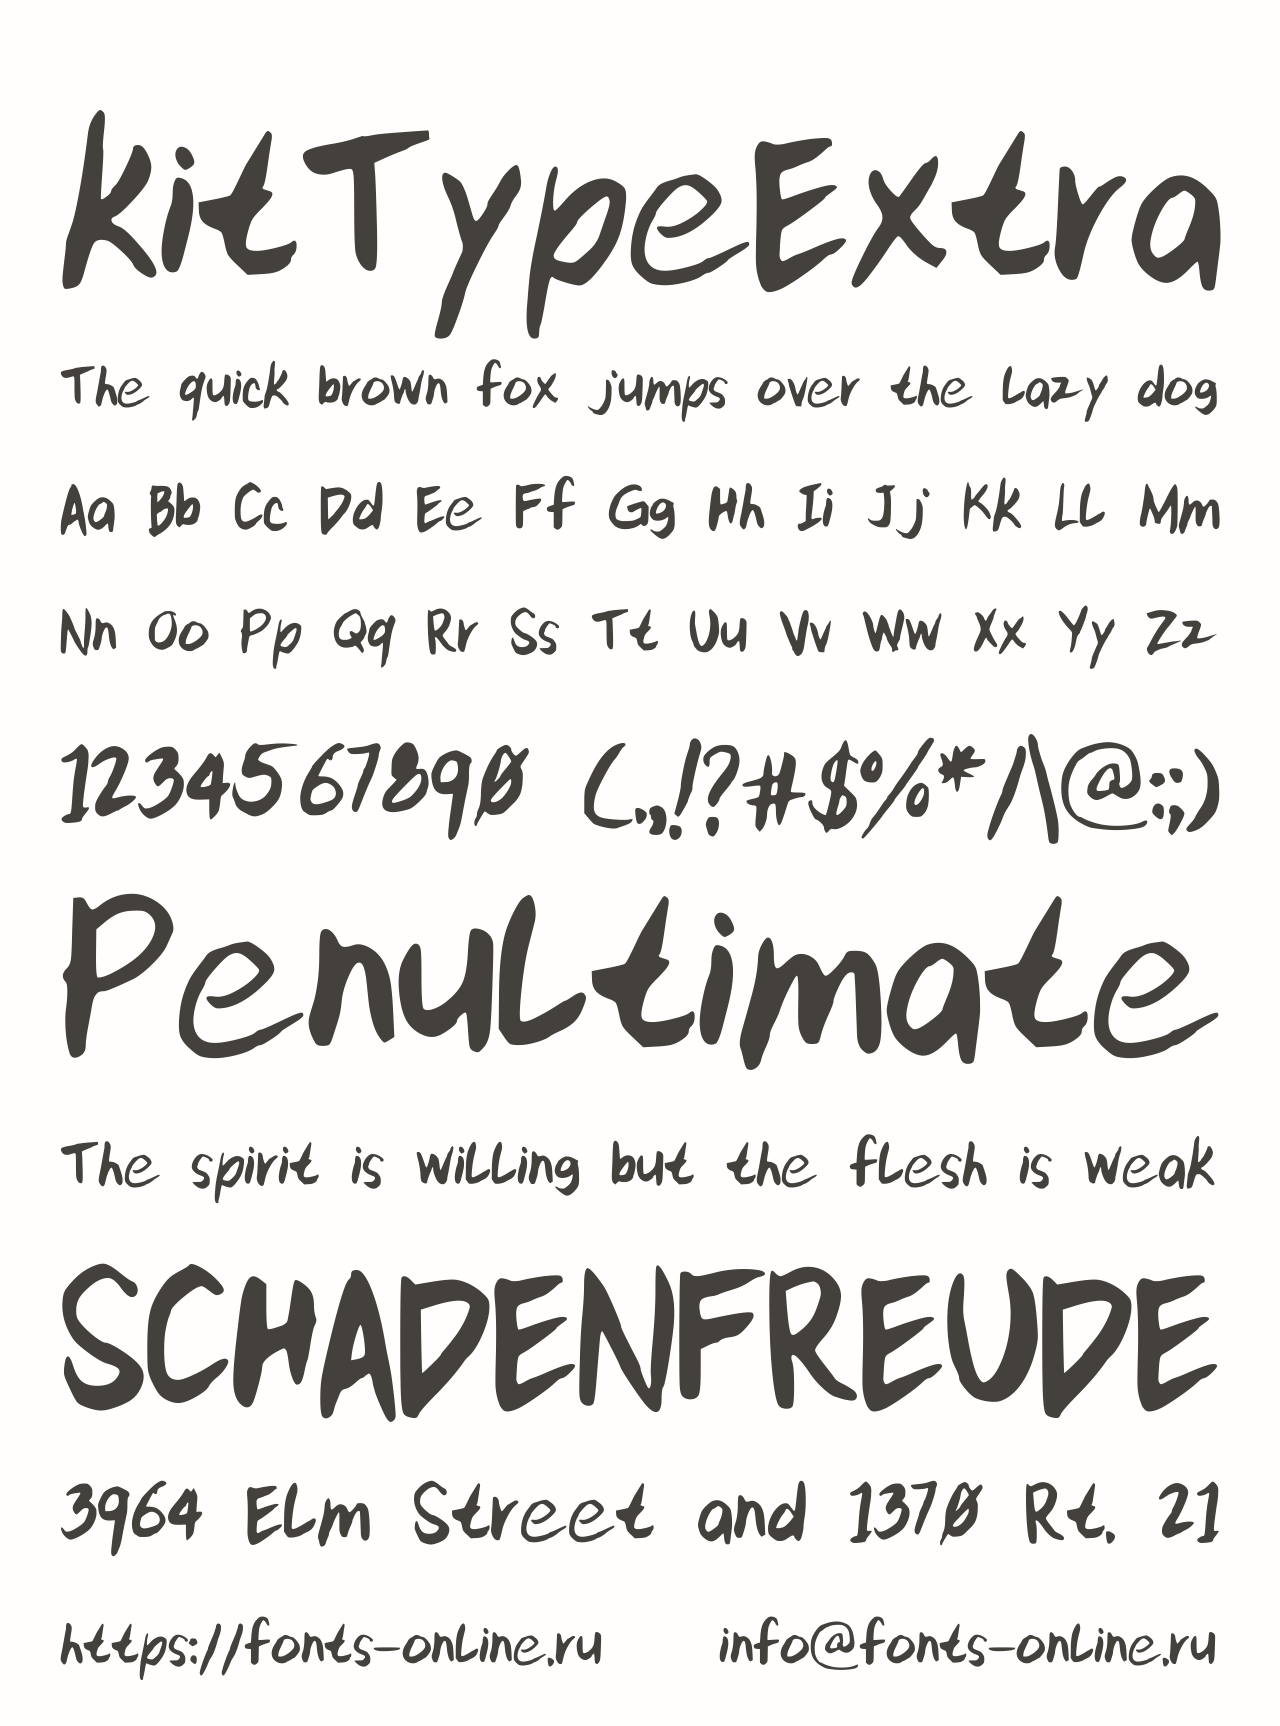 kitTypeExtra
The quick brown fox jumps over the lazy dog
Aa Bb Cc Dd Ee Ff Gg Hh Ii Jj Kk Ll Mm
Nn Oo Pp Qq Rr Ss Tt Uu Vv Ww Xx Yy Zz
1234567890 (.,!?#$%*/\@:;)
Penultimate
The spirit is willing but the flesh is weak
SCHADENFREUDE
3964 Elm Street and 1370 Rt. 21
https://fonts-online.ru info@fonts-online.ru